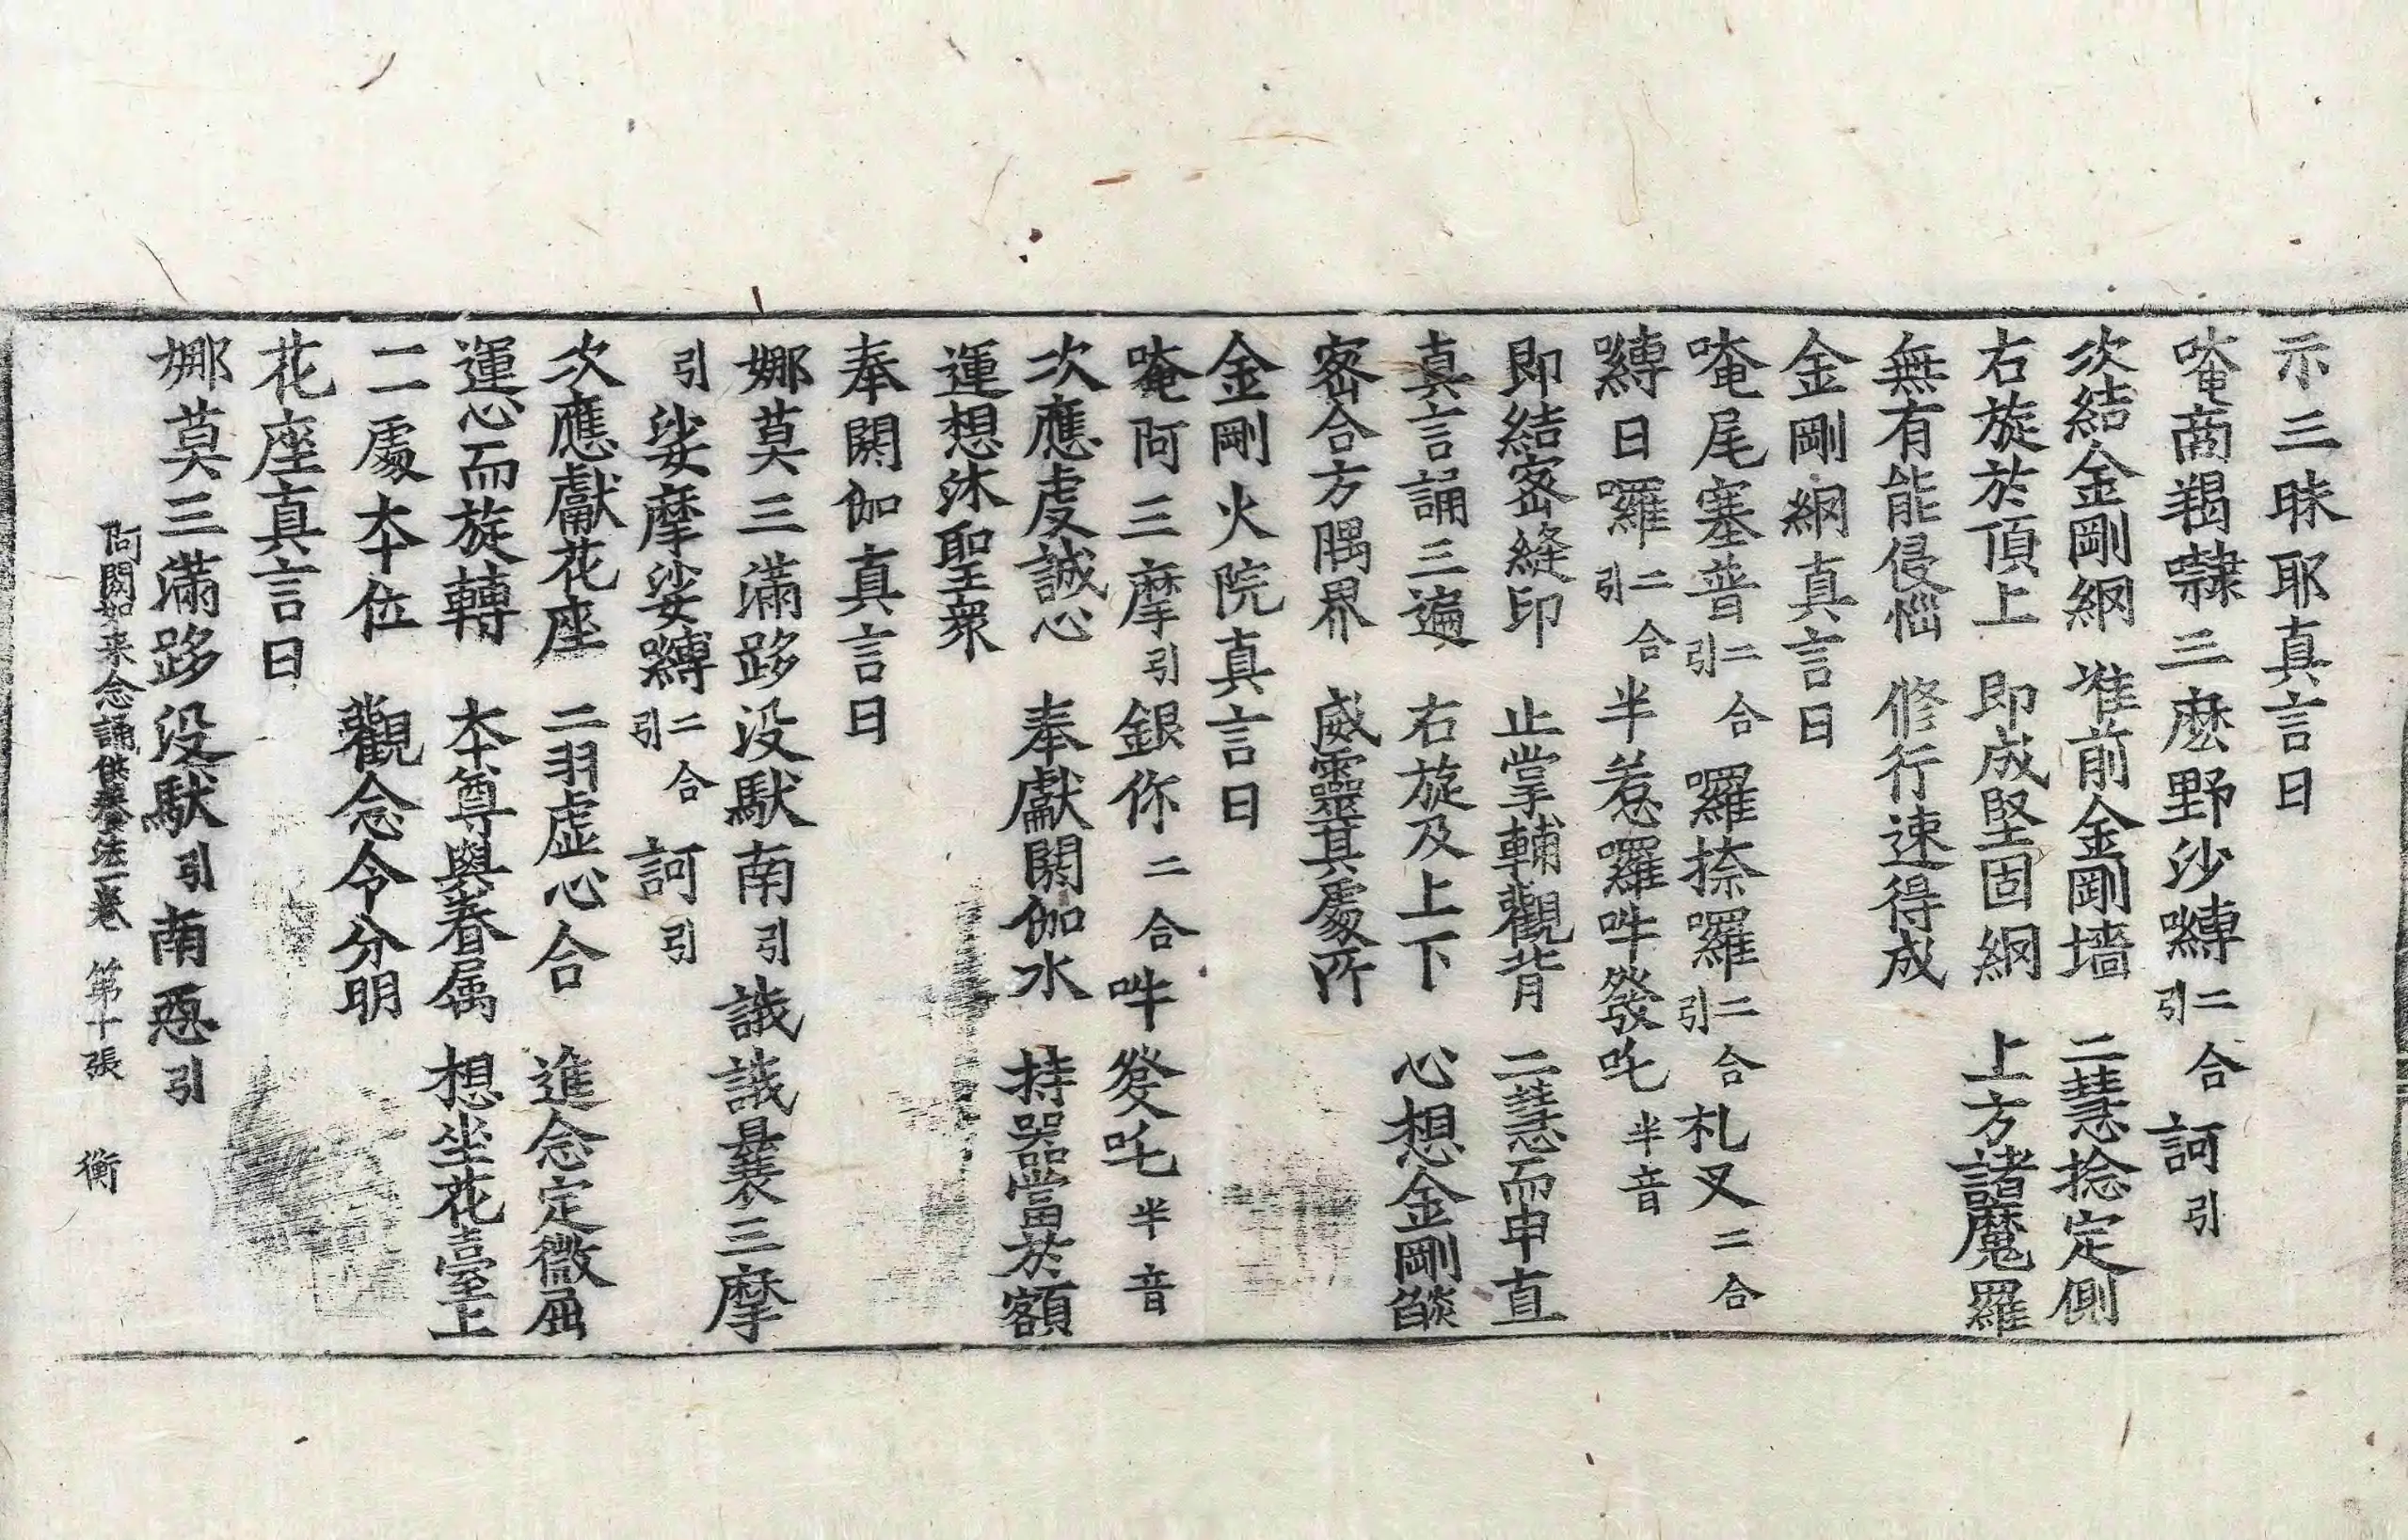 示三昧耶真言曰
唵商羯㘑三麽野沙嚩二合引訶引
次結金剛網　准前金剛墻　二慧捻定側
右旋於頂上　即成堅固網　上方諸魔羅
無有能侵惱　修行速得成
金剛網真言曰
唵尾塞普二合引囉捺囉二合引札叉二合
嚩日囉二合引半惹囉吽發吒半音
即結密縫印　止掌輔觀背　二慧而申直
真言誦三遍　右旋及上下　心想金剛燄
密合方隅界　威靈其處所
金剛火院真言曰
唵阿三摩引銀你二合吽發吒半音
次應虔誠心　奉獻閼伽水　持器當於額
運想沐聖衆
奉閼伽真言曰
娜莫三滿跢没馱南引誐誐曩三摩
引娑摩娑嚩二合引訶引
次應獻花座　二羽虛心合　進念定微屈
運心而旋轉　本尊與眷属　想坐花臺上
一一處本位　觀念令分明
花座真言曰
娜莫三滿跢没馱引南惡引
阿閦如来念誦供養法一卷　第十張　衡